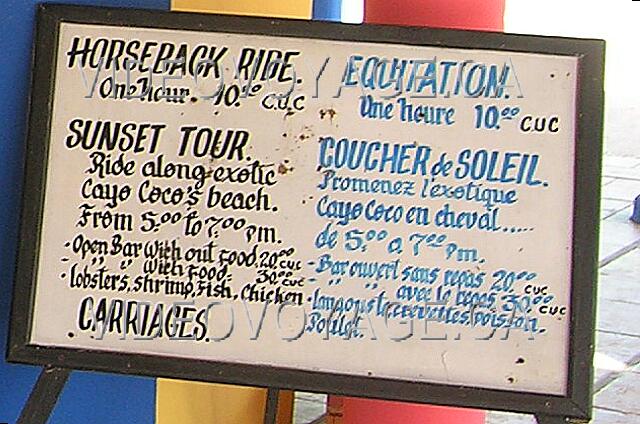 HORSEBACK RIDE.
One hour. 10.00 CUC
SUNSET TOUR.
Ride along exotic
Cayo Coco's beach.
From 5:00 to 7:00 pm.
- Open Bar with out food 20.00 CUC
- " " with food. 30.00 CUC
- lobsters, shrimp, Fish, Chicken
CARRIAGES.
EQUITATION.
Une heure 10.00 CUC
COUCHER de SOLEIL.
Promenez l'exotique
Cayo Coco en cheval.....
de 5:00 a 7:00 pm.
- Bar ouvert sans repas 20.00 CUC
- " " avec le repas 30.00 CUC
- langouste, crevettes, poisson,
Poulet.
VIDEOVOYAGE.CA
VIDEOVOYAGE.CA